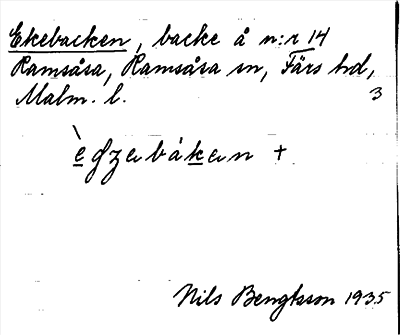 Ekebacken, backe å n:r 14
Ramsåsa, Ramsåsa sn, Färs hd,
Malm. l. 3
+
Nils Bengtsson 1935